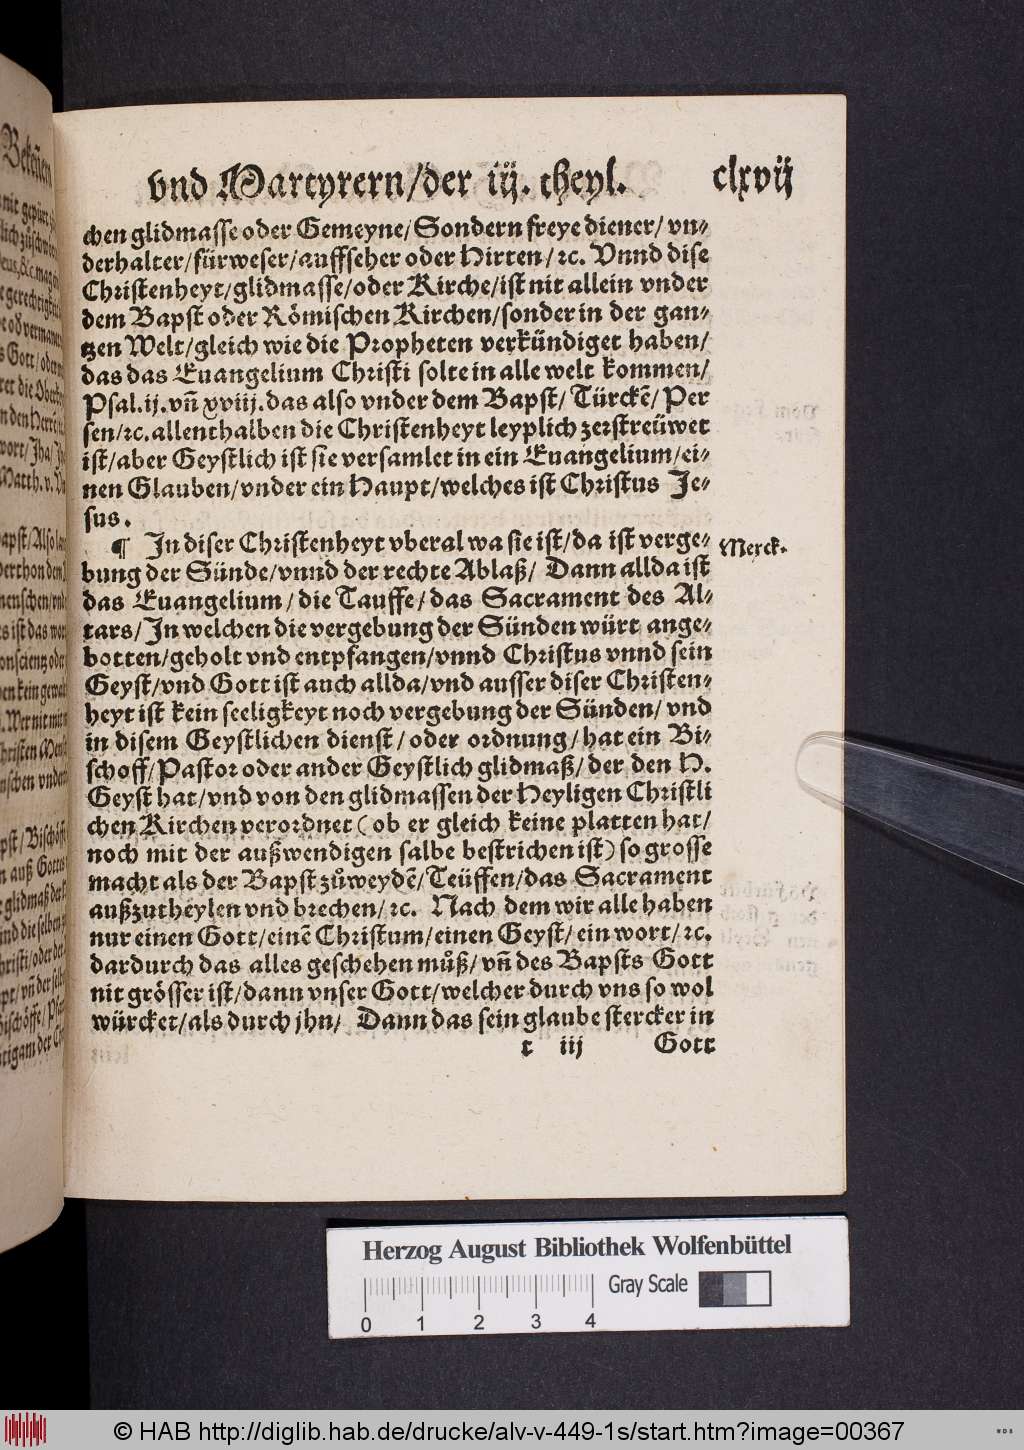 vnd Martyrern/der iij. theyl. clxvij
chen glidmasse oder Gemeyne/ Sondern freye diener/ vn⸗
derhalter/fürweser/auffseher oder Hirten/ ꝛc. Vnnd dise
Christenheyt/glidmasse/oder Kirche/ist nit allein vnder
dem Bapst oder Römischen Kirchen/sonder in der gan⸗
tzen Welt/gleich wie die Propheten verkündiget haben/
das das Euangelium Christi solte in alle welt kommen/
Psal.ij.vñ xviij.das also vnder dem Bapst/ Türckē/ Per
sen/ꝛc.allenthalben die Christenheyt leyplich zerstreüwet
ist/aber Geystlich ist sie versamlet in ein Euangelium/ei⸗
nen Glauben/vnder ein Haupt/welches ist Christus Je⸗
sus.
¶ In diser Christenheyt vberal wa sie ist/da ist verge⸗ Merck.
bung der Sünde/vnnd der rechte Ablaß/ Dann allda ist
das Euangelium/die Tauffe/das Sacrament des Al⸗
tars/In welchen die vergebung der Sünden würt ange⸗
botten/geholt vnd entpfangen/vnnd Christus vnnd sein
Geyst/vnd Gott ist auch allda/vnd ausser diser Christen⸗
heyt ist kein seeligkeyt noch vergebung der Sünden/ vnd
in disem Geystlichen dienst/oder ordnung/hat ein Bi⸗
schoff/Pastor oder ander Geystlich glidmaß/der den H.
Geyst hat/vnd von den glidmassen der Heyligen Christli
chen Kirchen verordnet (ob er gleich keine platten hat/
noch mit der außwendigen salbe bestrichen ist) so grosse
macht als der Bapst zůweydē/Teüffen/das Sacrament
außzutheylen vnd brechen/ꝛc. Nach dem wir alle haben
nur einen Gott/einē Christum/einen Geyst/ein wort/ꝛc.
dardurch das alles geschehen můß/vñ des Bapsts Gott
nit grösser ist/dann vnser Gott/welcher durch vns so wol
würcket/als durch jhn/ Dann das sein glaube stercker in
t iij Gott
Herzog August Bibliothek Wolfenbüttel
Gray Scale
0 1 2 3 4
© HAB http://diglib.hab.de/drucke/alv-v-449-1s/start.htm?image=00367